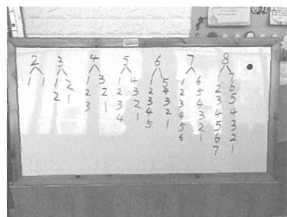 2 3 4 5 6 7 8
1 1 1 2 1 3 1 4 1 5 1 6 1 7
2 1 2 2 2 3 2 4 2 5 2 6
3 1 3 2 3 3 3 4 3 5
4 1 4 2 4 3 4 4
5 1 5 2 5 3
6 1 6 2
7 1